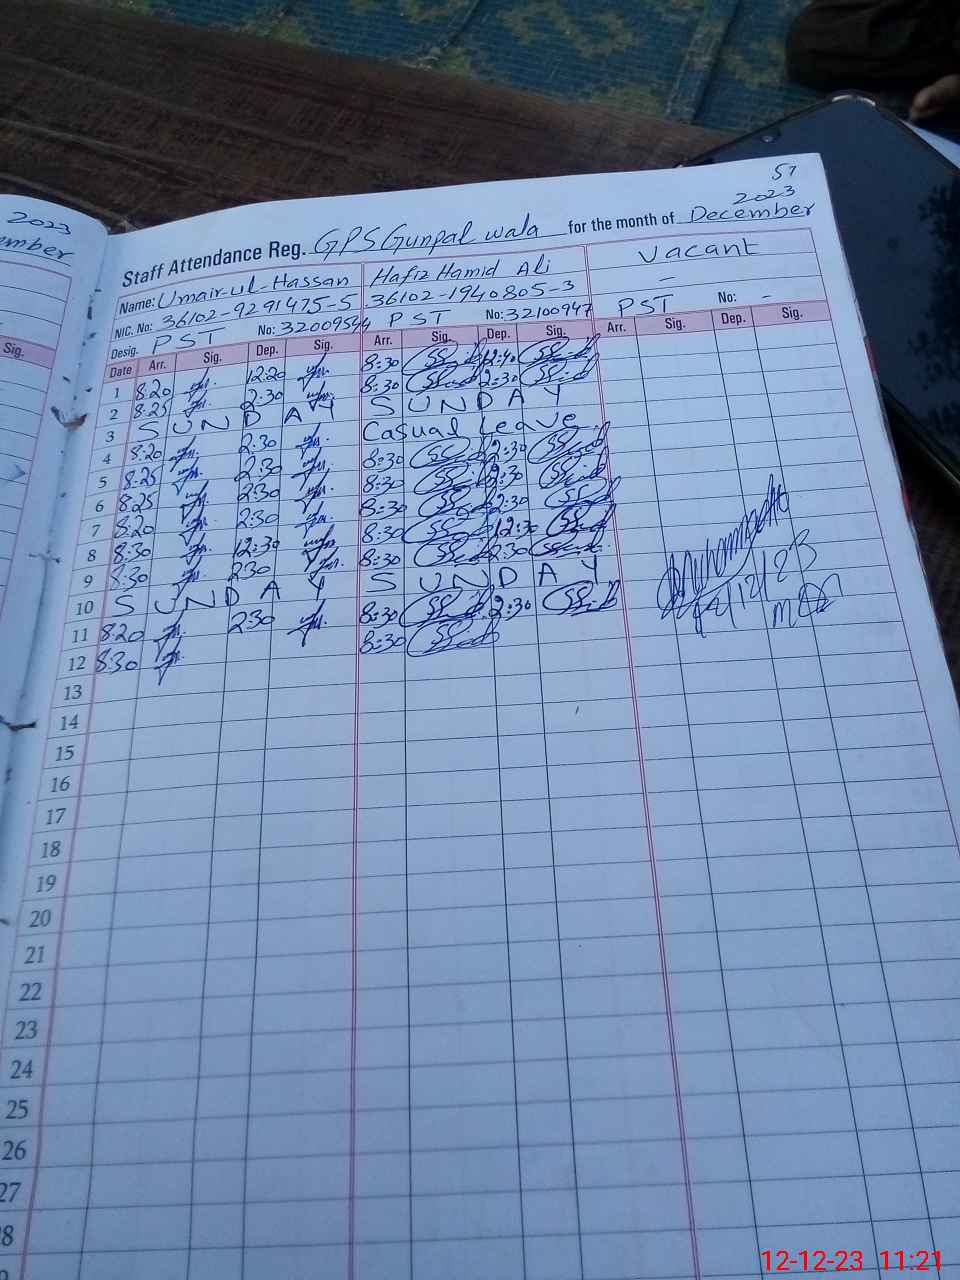 51
2023
Staff Attendance Reg. GPS Gunpal wala for the month of December
Name: Umair-ul-Hassan Hafiz Hamid Ali Vacant
NIC. No: 36102-9291475-5 36102-1940805-3 -
Desig. PST No: 32009544 PST No: 32100947 PST No: -
Date Arr. Sig. Dep. Sig. Arr. Sig. Dep. Sig. Arr. Sig. Dep. Sig.
1 8:20 12:20 8:30 12:40
2 8:25 2:30 8:30 2:30
3 SUNDAY SUNDAY
4 8:20 2:30 Casual Leave
5 8:25 2:30 8:30 2:30
6 8:25 2:30 8:30 2:30
7 8:20 2:30 8:30 2:30
8 8:30 12:30 8:30 12:30
9 8:30 2:30 8:30 2:30
10 SUNDAY SUNDAY
11 8:20 2:30 8:30 2:30
12 8:30 8:30
13
14
15
16
17
18
19
20
21
22
23
24
25
26
27
28
2023
Sig.
12-12-23 11:21